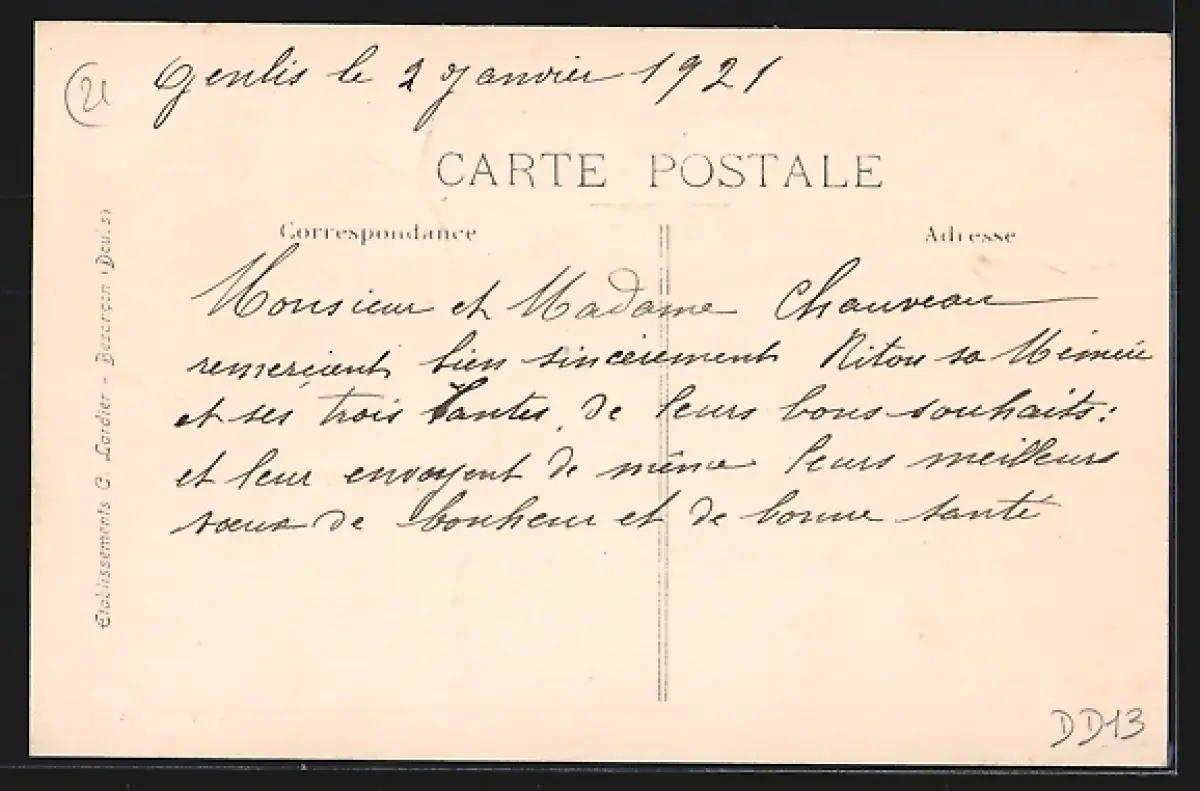 (21
Genlis le 2 Janvier 1921
CARTE POSTALE
Correspondance
Adresse
Monsieur et Madame Chauveau
remercient bien sincèrement Nitou sa Mémére
et ses trois tantes, de leurs bons souhaits:
et leur envoyent de même leurs meilleurs
vœux de bonheur et de bonne santé
Etablissements C. Lardier - Besançon (Doubs)
DD13